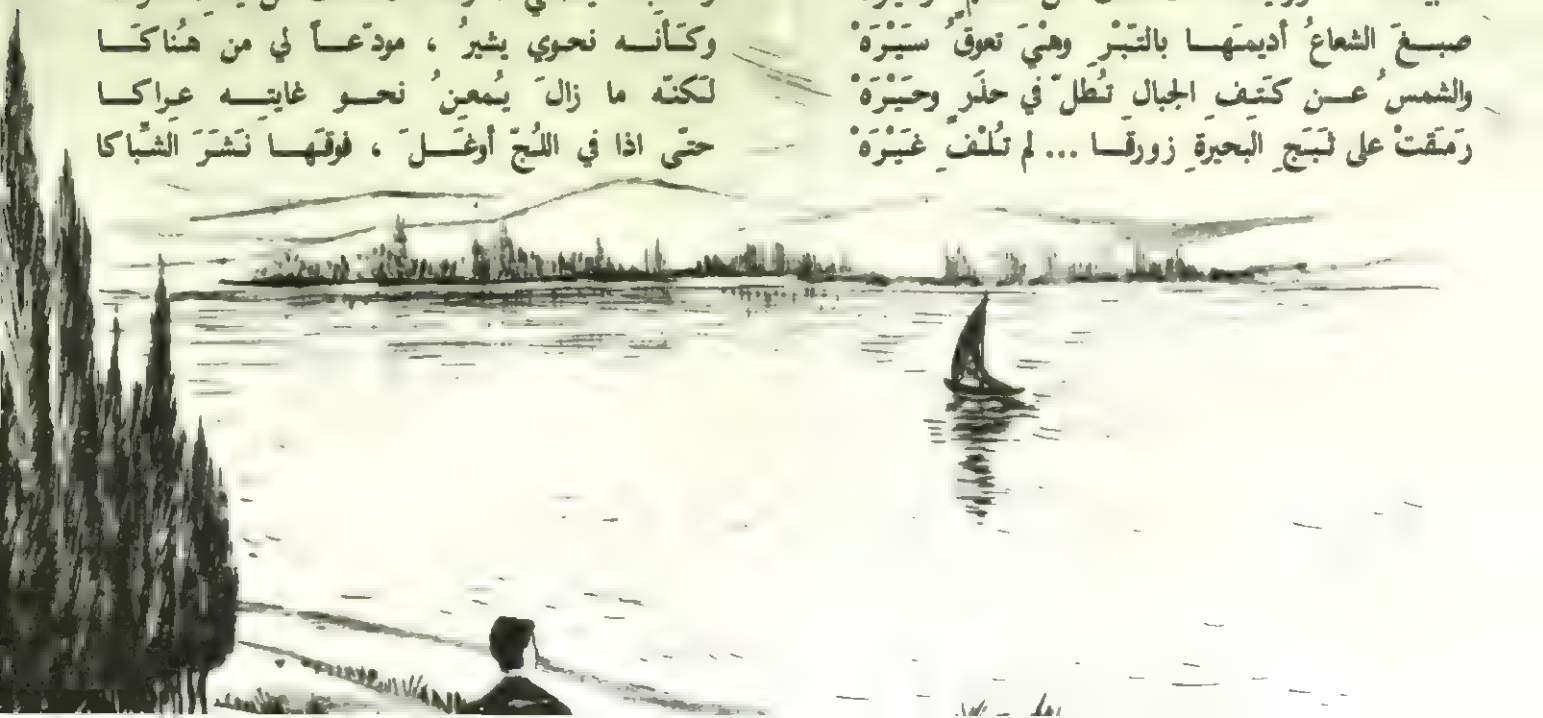 صبغَ الشعاعُ أديمَها بالتبْرِ وهْيَ تعوقُ سَيْرَهْ
والشمسُ عن كَتفِ الجبالِ تُطلّ في حذَرٍ وحَيْرَهْ
رَمَقتْ على ثَبَجِ البحيرةِ زورقا ... لم تُلْفِ غَيْرَهْ
وكأنه نحوي يشيرُ ، مودّعاً لي من هُناكَا
لكنّه ما زالَ يُمعنُ نحو غايتِه عراكا
حتّى اذا في اللُجّ أوغلَ ، فوقَها نَشَرَ الشّباكا